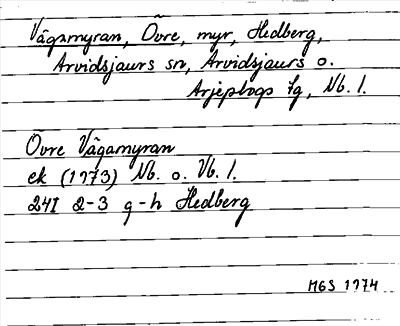 Vågamyran, Övre, myr, Hedberg,
Arvidsjaurs sn, Arvidsjaurs o.
Arjeplogs tg, Nb. l.
Övre Vågamyran
ek (1973) Nb. o. Vb. l.
24I 2-3 g-h Hedberg
MGS 1974